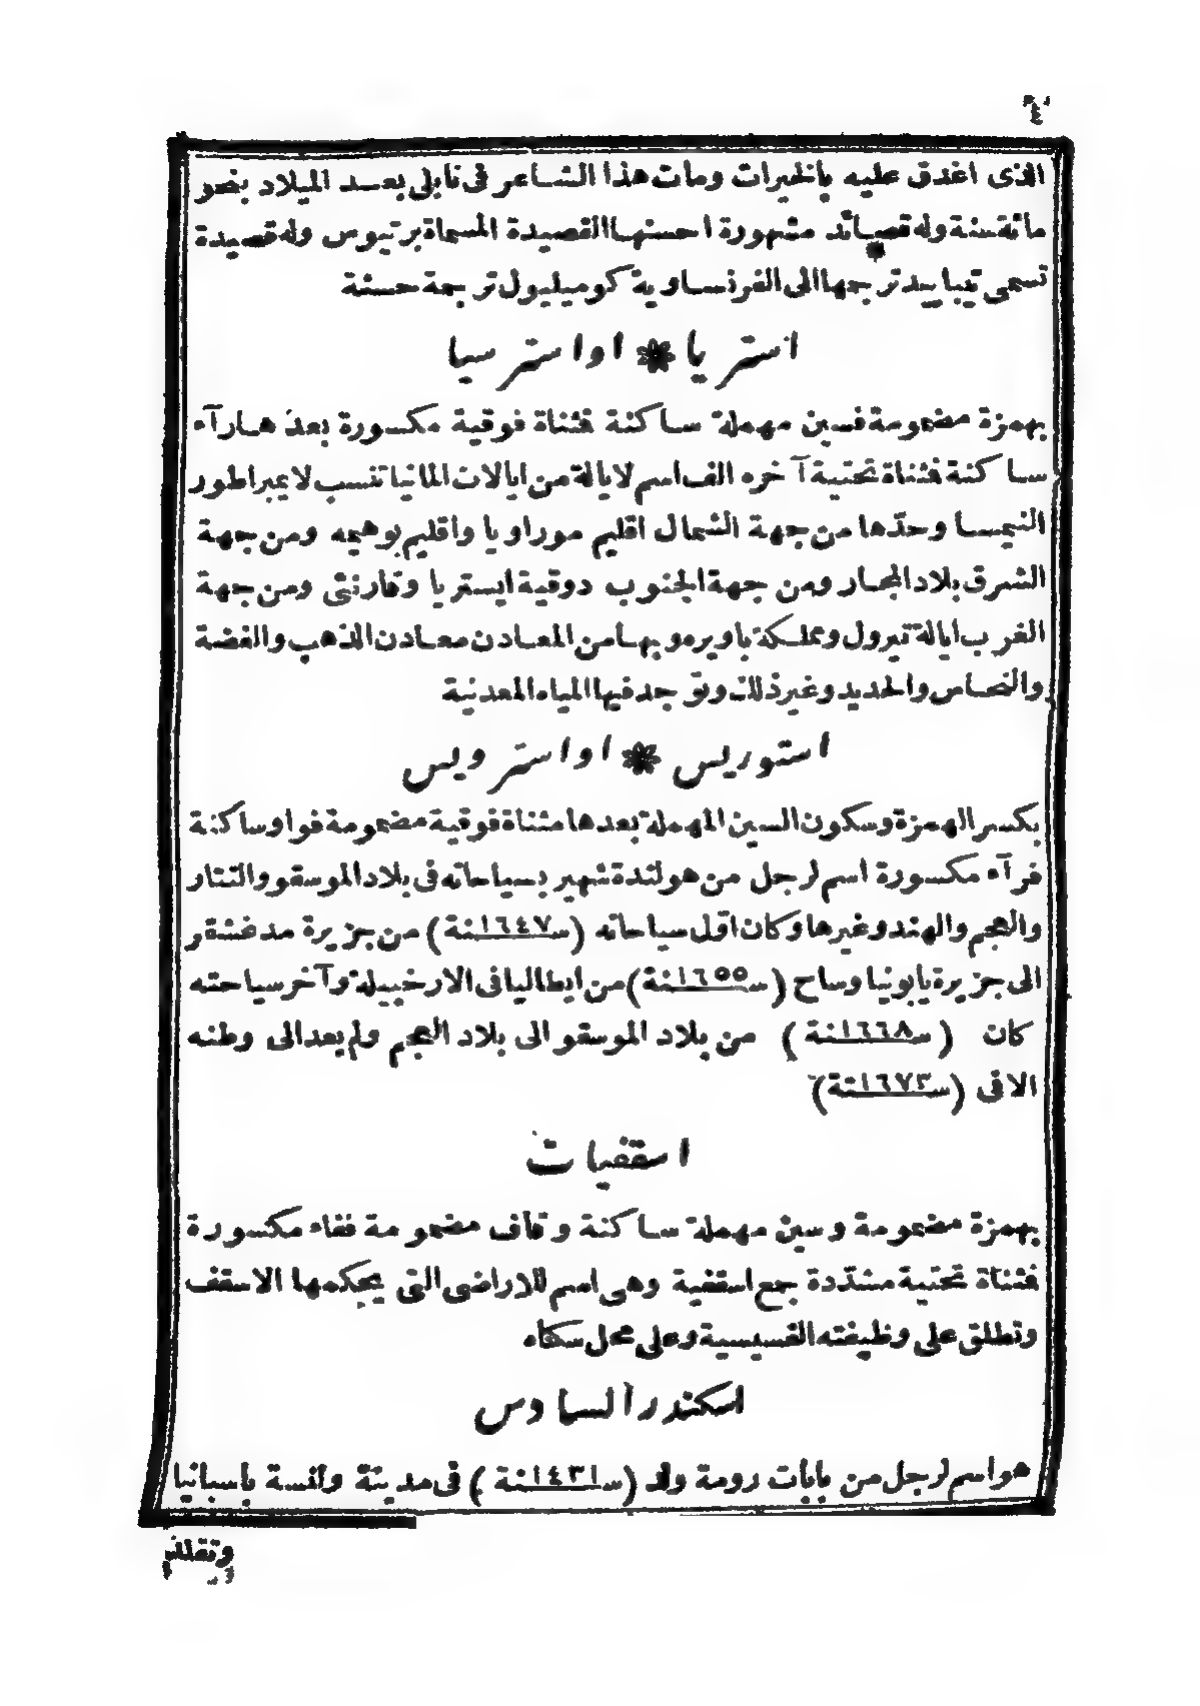 الذى اغدق عليه بالخيرات ومات هذا الشاعر فى نابلى بعد الميلاد بنحو
مائة سنة وله قصائد مشهورة احسنها القصيدة المسماة برتيوس وله قصيدة
تسمى تيباييد ترجمها الى الفرنساوية كوميليول ترجمة حسنة
استريا * او استرسيا
بهمزة مضمومة فسين مهملة ساكنة فمثناة فوقية مكسورة بعدها رآء
ساكنة فمثناة تحتية آخره الف اسم لايالة من ايالات المانيا تنسب لايمبراطور
النيمسا وحدّها من جهة الشمال اقليم موراويا واقليم بوهيمه ومن جهة
الشرق بلاد المجار ومن جهة الجنوب دوقية ايستريا وقارنثى ومن جهة
الغرب ايالة تيرول ومملكة باويره وبها من المعادن معادن الذهب والفضة
والنحاس والحديد وغير ذلك وتوجد فيها المياه المعدنية
استوريس * او استرويس
بكسر الهمزة وسكون السين المهملة بعدها مثناة فوقية مضمومة فواو ساكنة
فرآء مكسورة اسم لرجل من هولندة شهير بسياحاته فى بلاد الموسقو والتتار
والعجم والهند وغيرها وكان اوّل سياحاته (سنة ١٦٤٧) من جزيرة مدغشقر
الى جزيرة يابونيا وساح (سنة ١٦٥٥) من ايطاليا فى الارخبيلة وآخر سياحته
كان (سنة ١٦٦٨) من بلاد الموسقو الى بلاد العجم ولم يعد الى وطنه
الا فى (سنة ١٦٧٣)
اسقفيات
بهمزة مضمومة وسين مهملة ساكنة وقاف مضمومة ففاء مكسورة
فمثناة تحتية مشدّدة جمع اسقفية وهى اسم للاراضى التى يحكمها الاسقف
وتطلق على وظيفته القسيسية وعلى محل سكناه
اسكندر السادس
هو اسم لرجل من بابات رومة ولد (سنة ١٤٣١) فى مدينة ولنسة باسبانيا